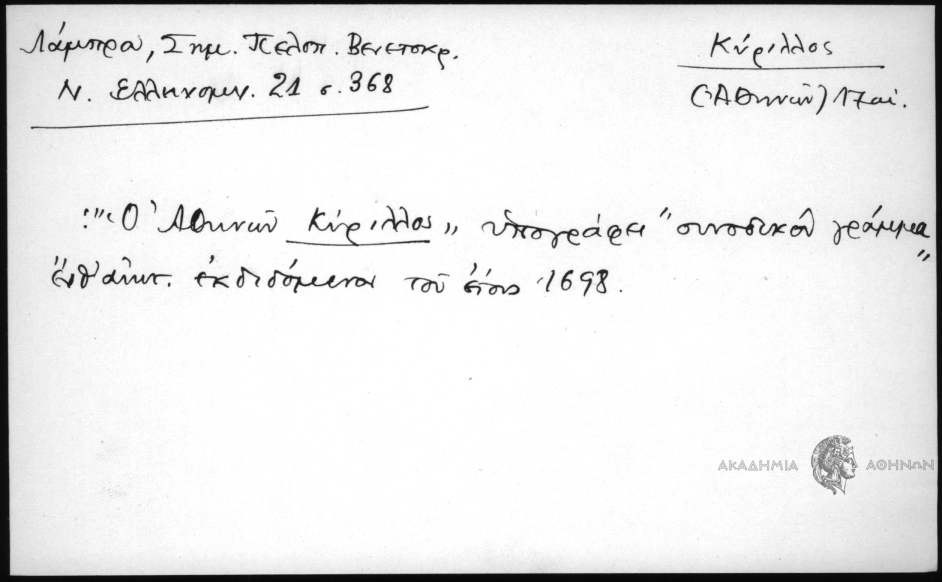 Λάμπρου, Σημ. Πελοπ. Βενετοκρ.
Ν. Ελληνομν. 21 σ. 368
Κύριλλος
(Ἀθηνῶν) 17 αἰ.
: "Ὁ Ἀθηνῶν Κύριλλος" ὑπογράφει "συνοδικὸν γράμμα"
ἐκδιδόμενον τοῦ ἔτους 1698.
ΑΚΑΔΗΜΙΑ ΑΘΗΝΩΝ